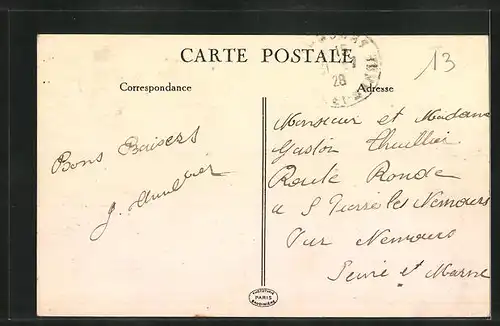 CARTE POSTALE
13
28
Correspondance
Adresse
Bons Baisers
J. Thuillier
Monsieur et Madame
Gaston Thuillier
Route Ronde
a S Pierre les Nemours
Par Nemours
Seine et Marne
PARIS